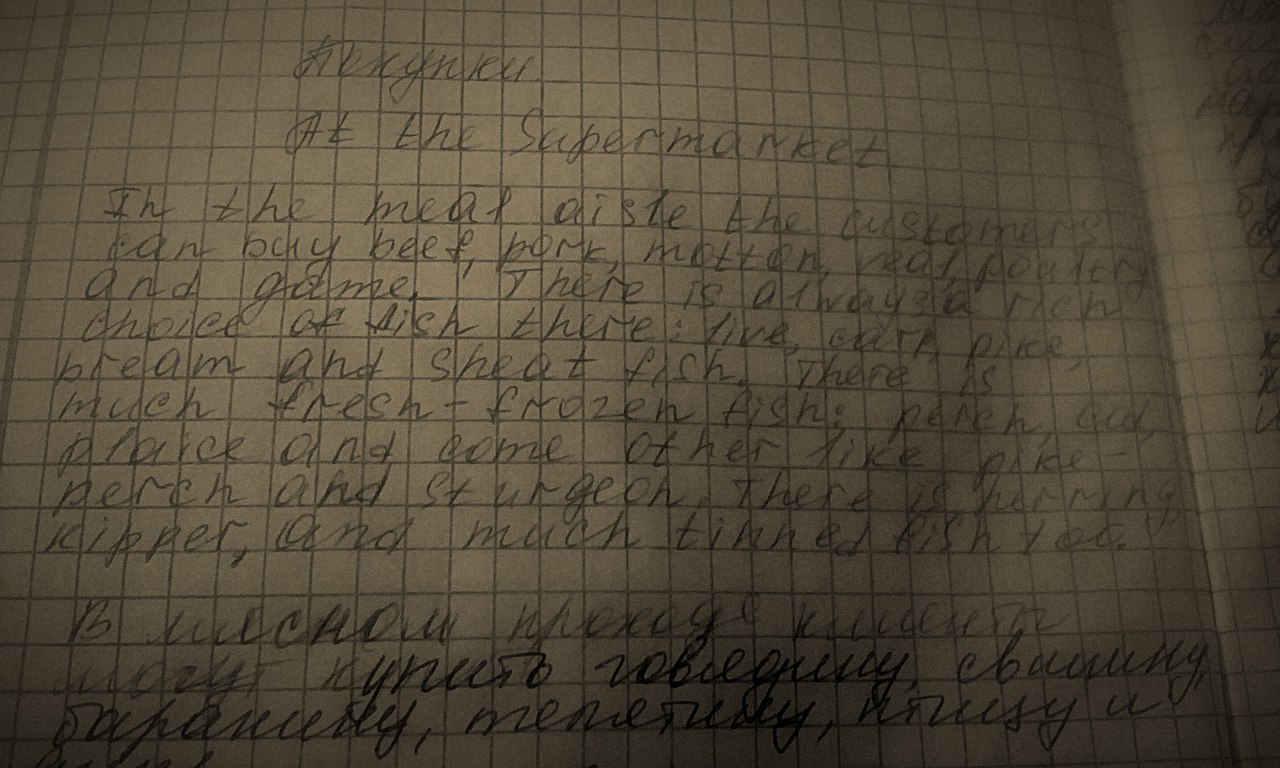 Покупки
At the Supermarket
In the meat aisle the customers
can buy beef, pork, motton, veal, poultry
and game. There is always a rich
choice of fish there: live, carp, pike,
bream and sheat fish. There is
much fresh-frozen fish: perch, cod,
plaice and come other like pike-
perch and sturgeon. There is herring,
kipper, and much tinned fish too.
В мясном проходе клиенты
могут купить говядину, свинину,
баранину, телятину, птицу и